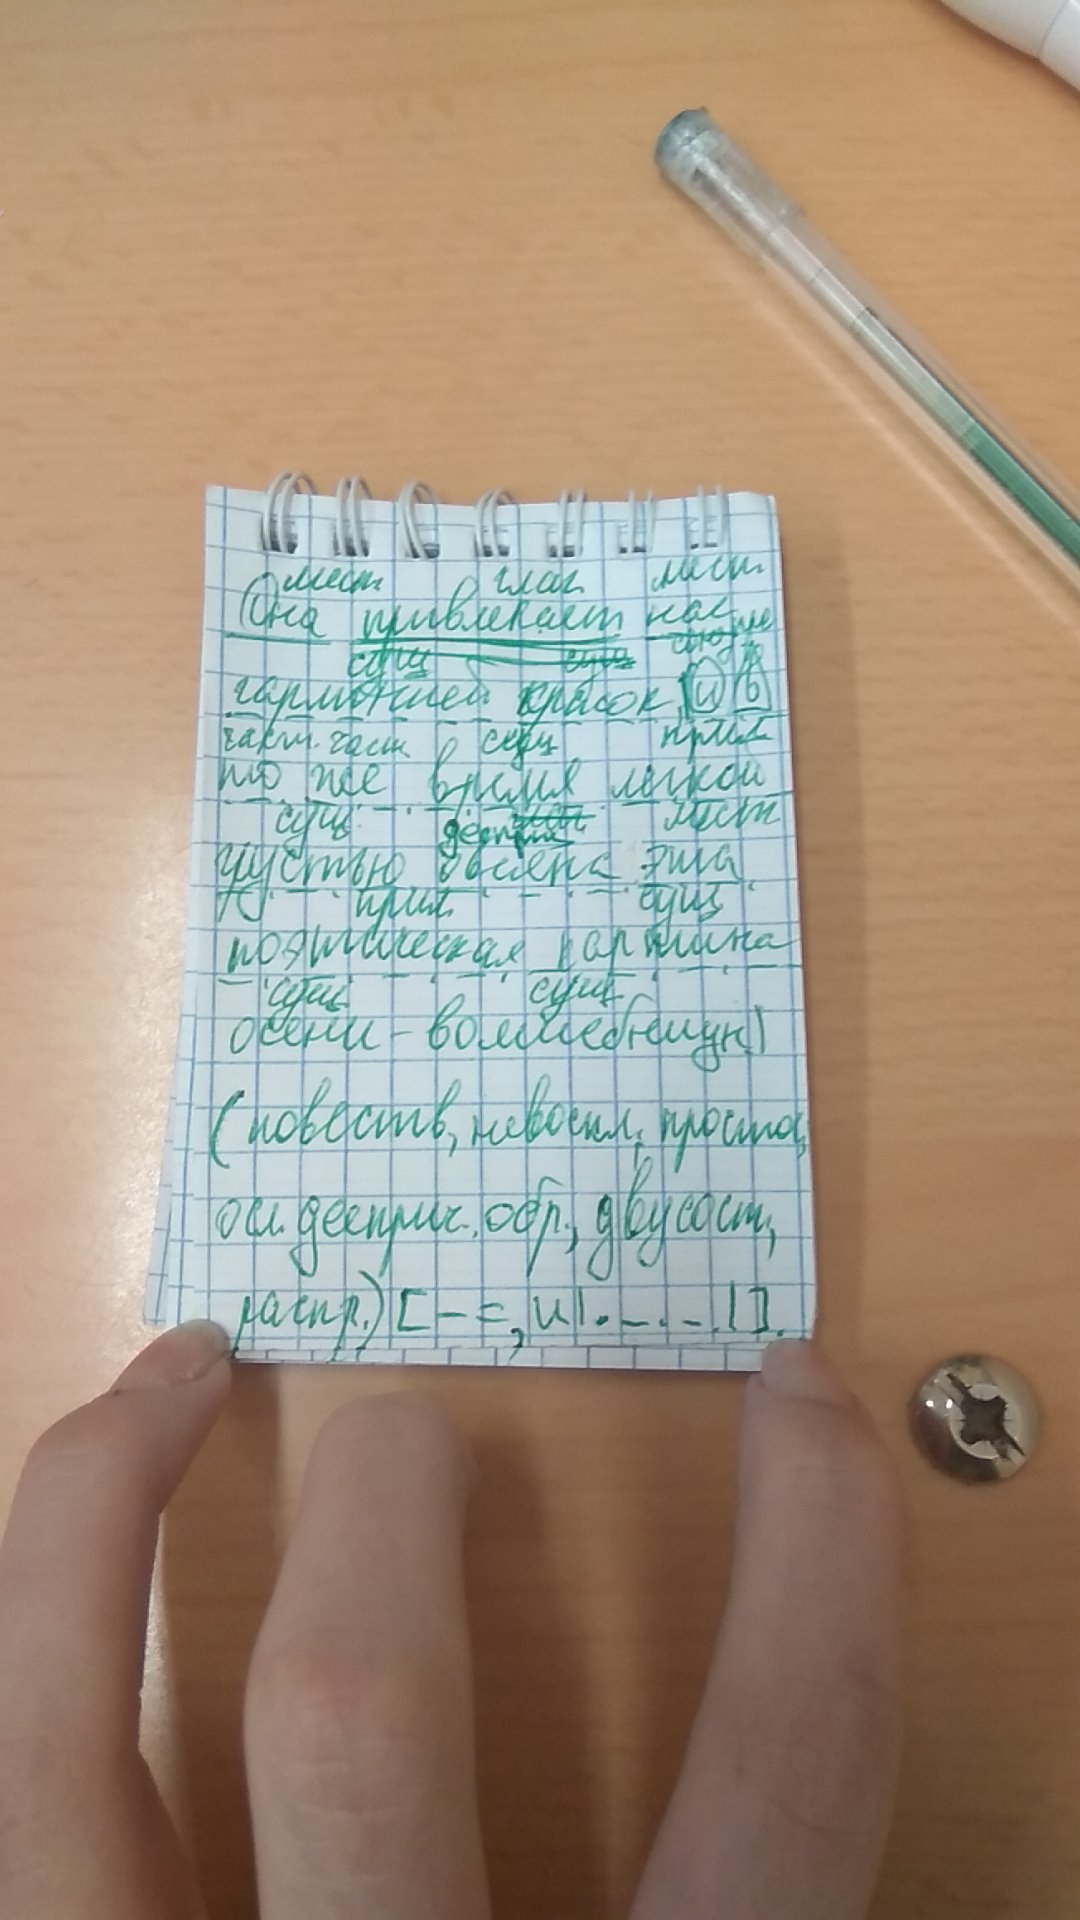 мест. глаг. мест.
Она привлекает нас
сущ сущ союз пре
гармонией красок, и в
част. част. сущ прил
то же время легкой
сущ. дееприч. мест
грустью овеяна эта
прил. сущ
поэтическая картина
сущ. сущ
осени - волшебницы.
(повеств, невоскл, простое,
осл. дееприч. обр., двусост,
распр.) [- =, и |. _ . _ .|].